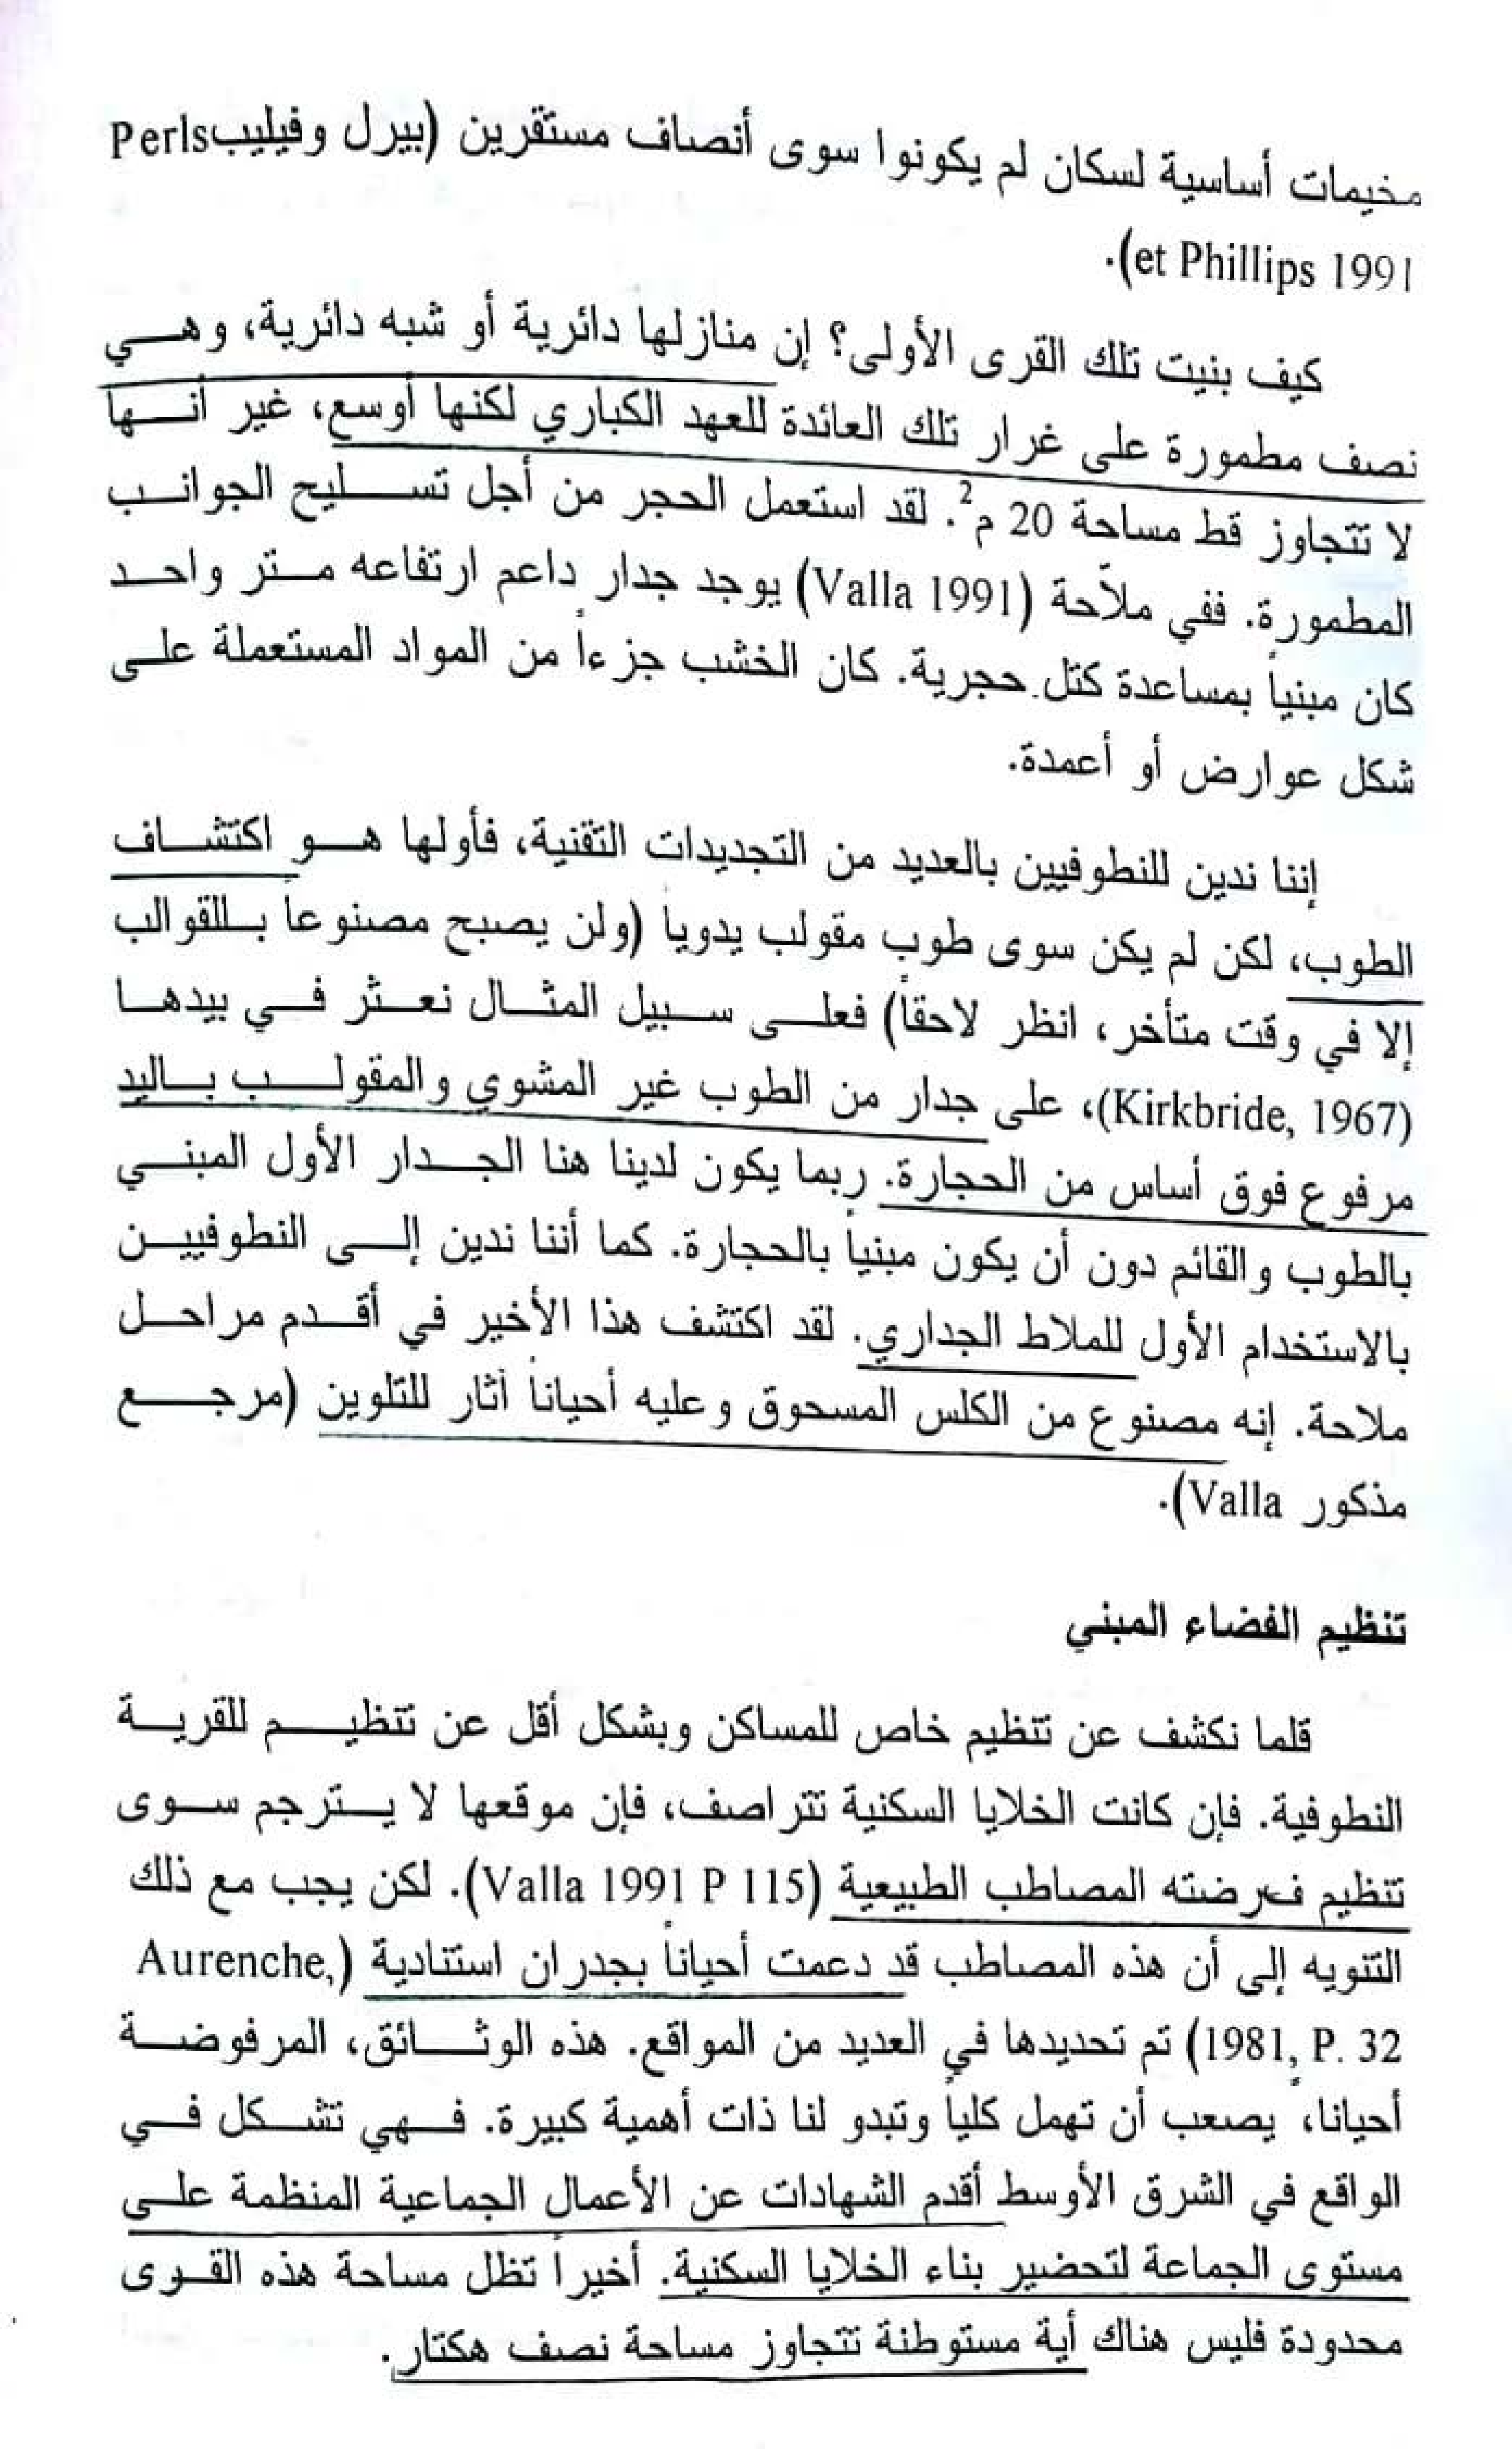 مخيمات أساسية لسكان لم يكونوا سوى أنصاف مستقرين (بيرل وفيليب Perls
et Phillips 1991).
كيف بنيت تلك القرى الأولى؟ إن منازلها دائرية أو شبه دائرية، وهي
نصف مطمورة على غرار تلك العائدة للعهد الكباري لكنها أوسع، غير أنها
لا تتجاوز قط مساحة 20 م². لقد استعمل الحجر من أجل تسليح الجوانب
المطمورة. ففي ملاّحة (Valla 1991) يوجد جدار داعم ارتفاعه متر واحد
كان مبنياً بمساعدة كتل حجرية. كان الخشب جزءاً من المواد المستعملة على
شكل عوارض أو أعمدة.
إننا ندين للنطوفيين بالعديد من التجديدات التقنية، فأولها هو اكتشاف
الطوب، لكن لم يكن سوى طوب مقولب يدوياً (ولن يصبح مصنوعاً بالقوالب
إلا في وقت متأخر، انظر لاحقاً) فعلى سبيل المثال نعثر في بيدها
(Kirkbride, 1967)، على جدار من الطوب غير المشوي والمقولب باليد
مرفوع فوق أساس من الحجارة. ربما يكون لدينا هنا الجدار الأول المبني
بالطوب والقائم دون أن يكون مبنياً بالحجارة. كما أننا ندين إلى النطوفيين
بالاستخدام الأول للملاط الجداري. لقد اكتشف هذا الأخير في أقدم مراحل
ملاحة. إنه مصنوع من الكلس المسحوق وعليه أحياناً آثار للتلوين (مرجع
مذكور Valla).
تنظيم الفضاء المبني
قلما نكشف عن تنظيم خاص للمساكن وبشكل أقل عن تنظيم للقرية
النطوفية. فإن كانت الخلايا السكنية تتراصف، فإن موقعها لا يترجم سوى
تنظيم فرضته المصاطب الطبيعية (Valla 1991 P 115). لكن يجب مع ذلك
التنويه إلى أن هذه المصاطب قد دعمت أحياناً بجدران استنادية (Aurenche,
1981, P. 32) تم تحديدها في العديد من المواقع. هذه الوثائق، المرفوضة
أحيانا، يصعب أن تهمل كلياً وتبدو لنا ذات أهمية كبيرة. فهي تشكل في
الواقع في الشرق الأوسط أقدم الشهادات عن الأعمال الجماعية المنظمة على
مستوى الجماعة لتحضير بناء الخلايا السكنية. أخيراً تظل مساحة هذه القوى
محدودة فليس هناك أية مستوطنة تتجاوز مساحة نصف هكتار.